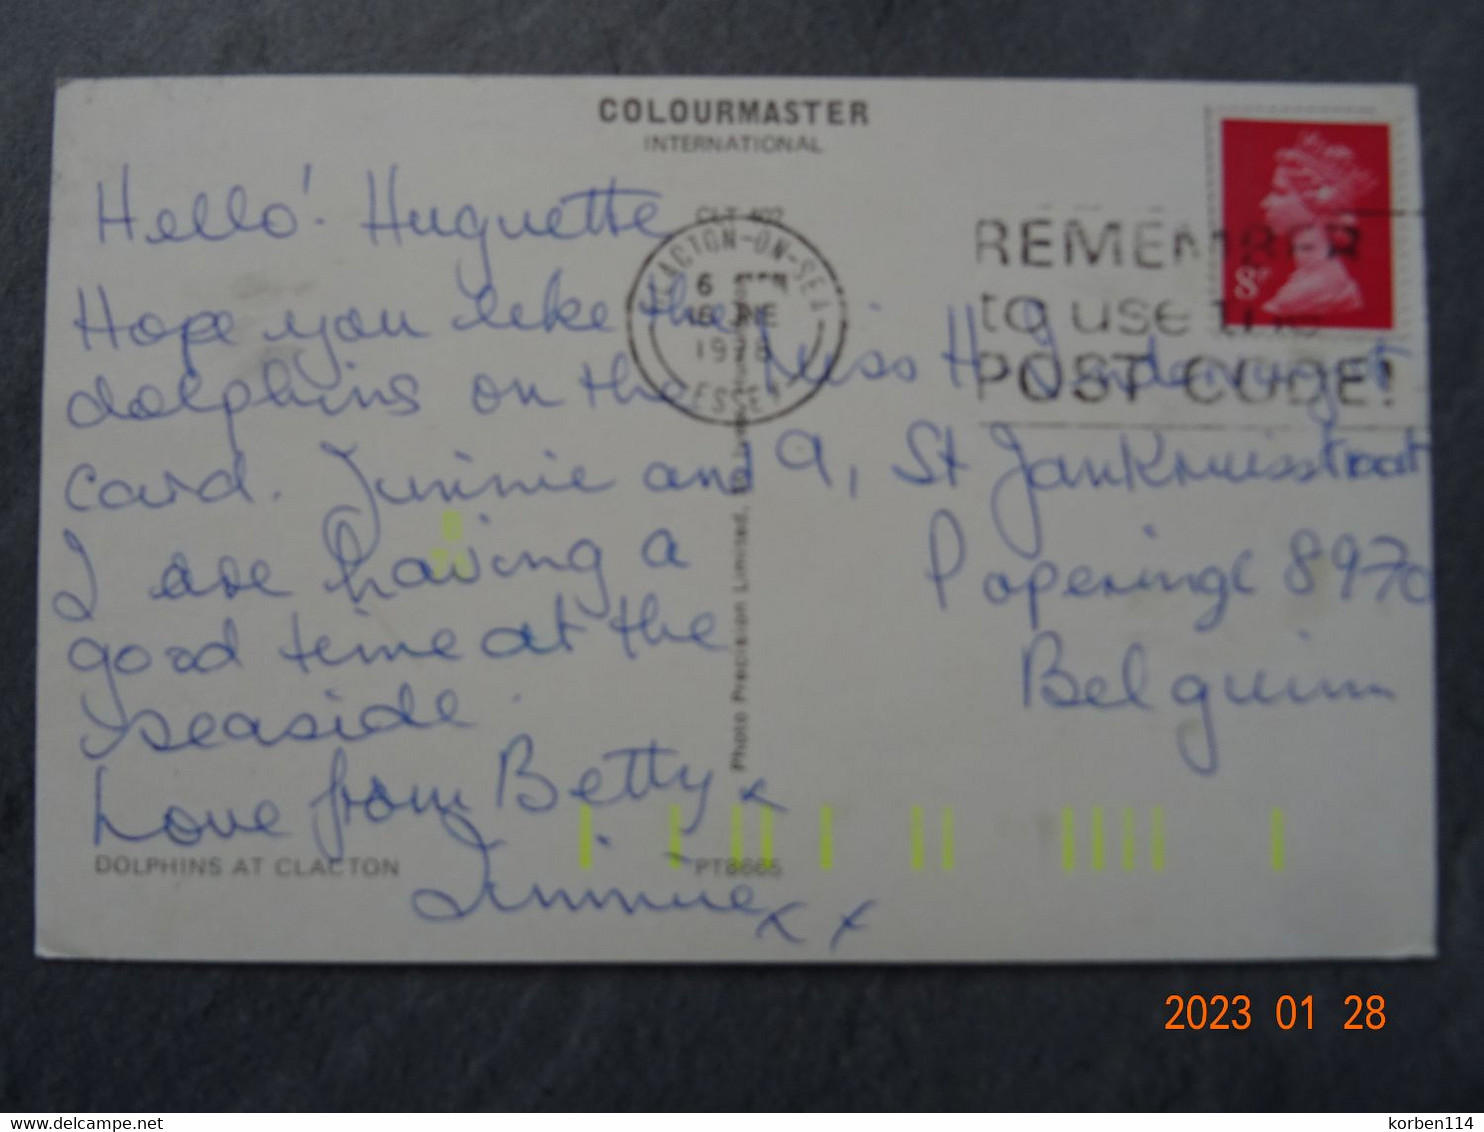 COLOURMASTER
INTERNATIONAL
CLT 402
Hello! Huguette
Hope you like the
dolphins on the
card. Jimmie and
I are having a
good time at the
seaside.
Love from Betty x
Jimmie x x
DOLPHINS AT CLACTON
PT8665
Photo Precision Limited,
CLACTON-ON-SEA
6
1978
ESSEX
REMEMBER
to use the
POST CODE!
8P
Miss H
9, St JanKruisstraat
Poperinge 8970
Belguim
2023 01 28
delcampe.net
korben114